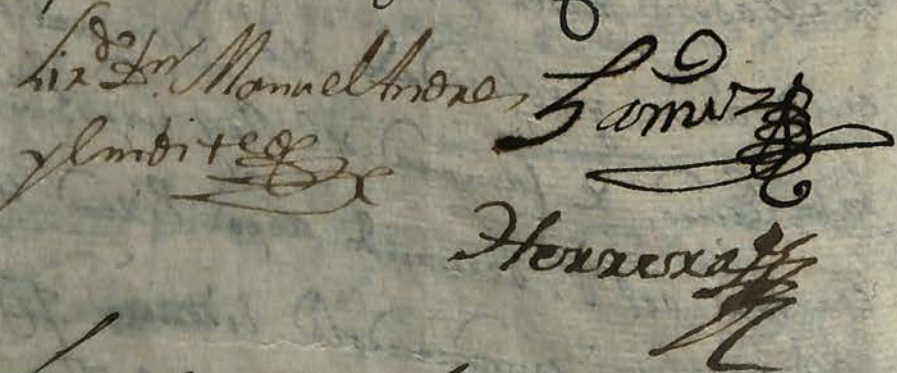 Lizdo Dn Manuel Andres
y Lindite
Samiz
Herrera